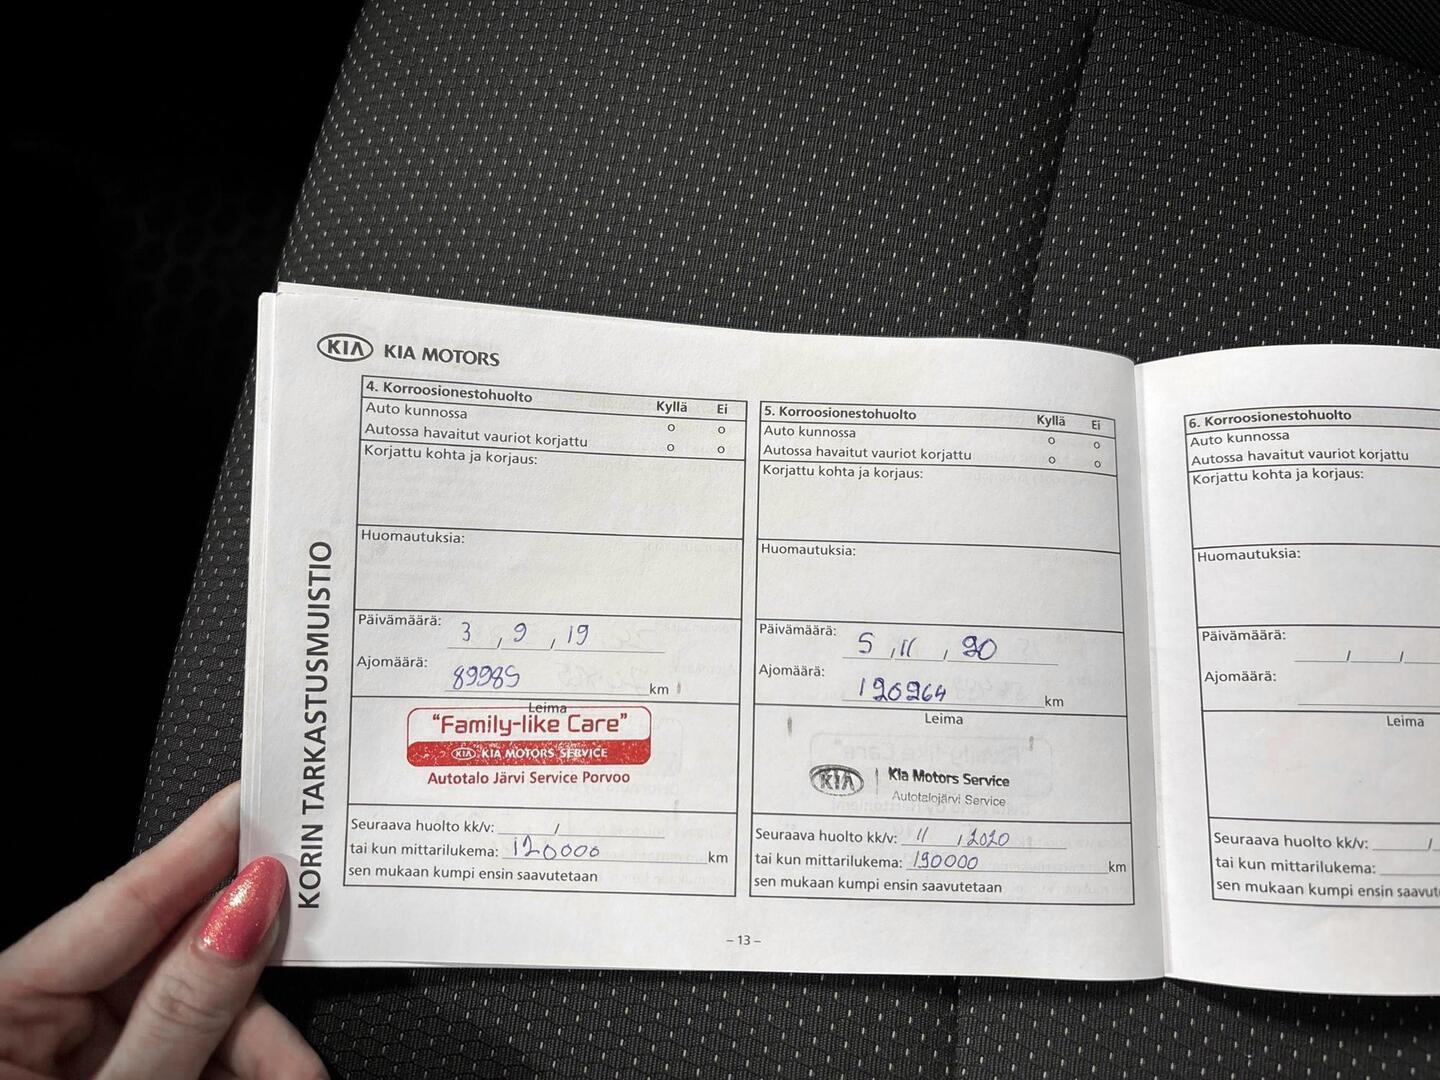 KIA KIA MOTORS
KORIN TARKASTUSMUISTIO
4. Korroosionestohuolto Kyllä Ei
Auto kunnossa o o
Autossa havaitut vauriot korjattu o o
Korjattu kohta ja korjaus:
Huomautuksia:
Päivämäärä: 3 , 9 , 19
Ajomäärä: 89985 km
Leima
"Family-like Care"
KIA KIA MOTORS SERVICE
Autotalo Järvi Service Porvoo
Seuraava huolto kk/v: /
tai kun mittarilukema: 120000 km
sen mukaan kumpi ensin saavutetaan
5. Korroosionestohuolto Kyllä Ei
Auto kunnossa o o
Autossa havaitut vauriot korjattu o o
Korjattu kohta ja korjaus:
Huomautuksia:
Päivämäärä: 5 , 11 , 20
Ajomäärä: 120264 km
Leima
KIA Kia Motors Service
Autotalojärvi Service
Seuraava huolto kk/v: 11 , 2020
tai kun mittarilukema: 190000 km
sen mukaan kumpi ensin saavutetaan
– 13 –
6. Korroosionestohuolto
Auto kunnossa
Autossa havaitut vauriot korjattu
Korjattu kohta ja korjaus:
Huomautuksia:
Päivämäärä: / /
Ajomäärä:
Leima
Seuraava huolto kk/v: /
tai kun mittarilukema:
sen mukaan kumpi ensin saavut